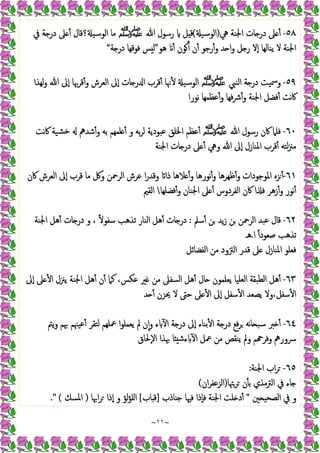 ٥٨- أعلى درجات الجنة هي(الوسيلة)قيل يا رسول الله ﷺ ما الوسيلة؟قال أعلى درجة في
الجنة لا ينالها إلا رجل واحد وأرجو أن أكون أنا هو"ليس فوقها درجة"
٥٩- وسميت درجة النبي ﷺ الوسيلة لأنها أقرب الدرجات إلى العرش وأقربها إلى الله ولهذا
كانت أفضل الجنة وأشرفها وأعظمها نورا
٦٠- فلما كان رسول الله ﷺ أعظم الخلق عبودية لربه و أعلمهم به وأشدهم له خشية كانت
منزلته أقرب المنازل إلى الله وهي أعلى درجات الجنة
٦١- أنزه الموجودات وأظهرها وأنورها وأعلاها ذاتا وقدرا عرش الرحمن وكل ما قرب إلى العرش كان
أنور وأزهر فلذا كان الفردوس أعلى الجنان وأفضلها\ القيم
٦٢- قال عبد الرحمن بن زيد بن أسلم : درجات أهل النار تذهب سفولاً ، و درجات أهل الجنة
تذهب صعوداً ا.هـ
فعلو المنازل على قدر التزود من الفضائل
٦٣- أهل الطبقة العليا يعلمون حال أهل السفلى من غير عكس، كما أن أهل الجنة ينزل الأعلى إلى
الأسفل،ولا يصعد الأسفل إلى الأعلى حتى لا يحزن أحد
٦٤- أخبر سبحانه برفع درجة الأبناء إلى درجة الآباء وإن لم يعملوا عملهم لتقر أعينهم بهم ويتم
سرورهم وفرحهم ولم ينقص من عمل الآباءشيئاً بهذا الإلحاق
٦٥- تراب الجنة:
جاء في الترمذي بأن تربتها(الزعفران)
و في الصحيحين " أدخلت الجنة فإذا فيها جنابذ [قباب] اللؤلؤ و إذا ترابها ( المسك ) ".
~١١~